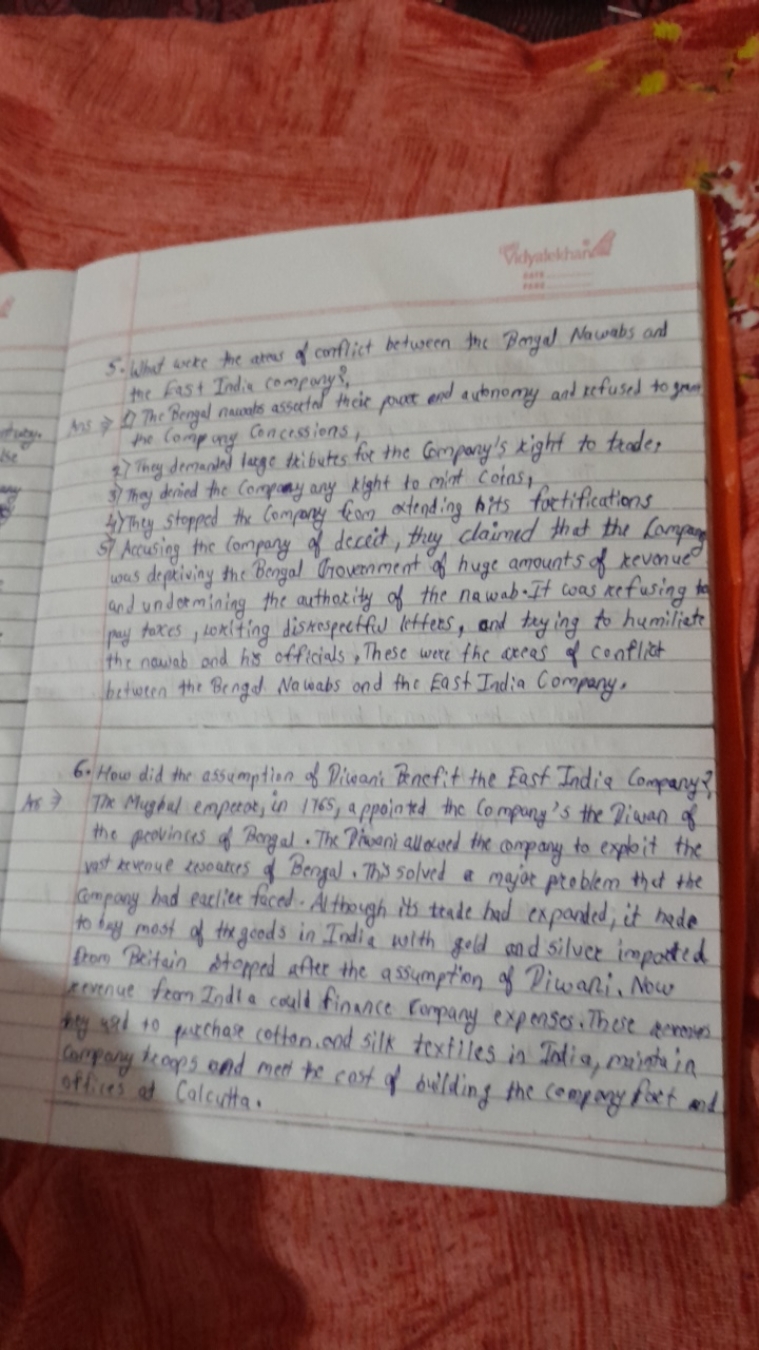 Vidyalekhan
DATE
PAGE
5. What were the areas of conflict between the Bengal Nawabs and
the East India company?
Ans ⇒ 1) The Bengal nawabs asserted their power and autonomy and refused to gran
the Company Concessions,
2) They demanded large tributes for the Company's right to trade,
3) They denied the Company any right to mint coins,
4) They stopped the Company from extending hits fortifications
5) Accusing the Company of deceit, they claimed that the Company
was depriving the Bengal Government of huge amounts of revenue
and undermining the authority of the nawab. It was refusing to
pay taxes, writing disrespectful letters, and trying to humiliate
the nawab and his officials, These were the areas of conflict
between the Bengal Nawabs and the East India Company.
6. How did the assumption of Diwani Benefit the East India Company?
Ans ⇒ The Mughal emperor, in 1765, appointed the Company's the Diwan of
the provinces of Bengal. The Diwani allowed the company to exploit the
vast revenue resources of Bengal. This solved a major problem that the
Company had earlier faced. Although its trade had expanded, it hade
to buy most of the goods in India with gold and silver imported
from Britain stopped after the assumption of Diwani. Now
revenue from India could finance company expenses. These
used to purchase cotton and silk textiles in India, maintain
Company troops and meet the cost of building the company fort and
offices at Calcutta.